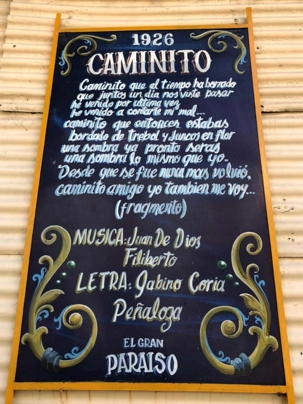 1926
CAMINITO
Caminito que el tiempo ha borrado
que juntos un dia nos viste pasar
he venido por ultima vez,
he venido a contarte mi mal...
caminito que entonces estabas
bordado de trebol y Juncos en flor
una sombra ya pronto seras
una sombra lo mismo que yo.
Desde que se fue nunca mas volvió.
caminito amigo yo tambien me voy...
(fragmento)
MUSICA: Juan De Dios
Filiberto
LETRA: Gabino Coria
Peñaloza
EL GRAN
PARAISO